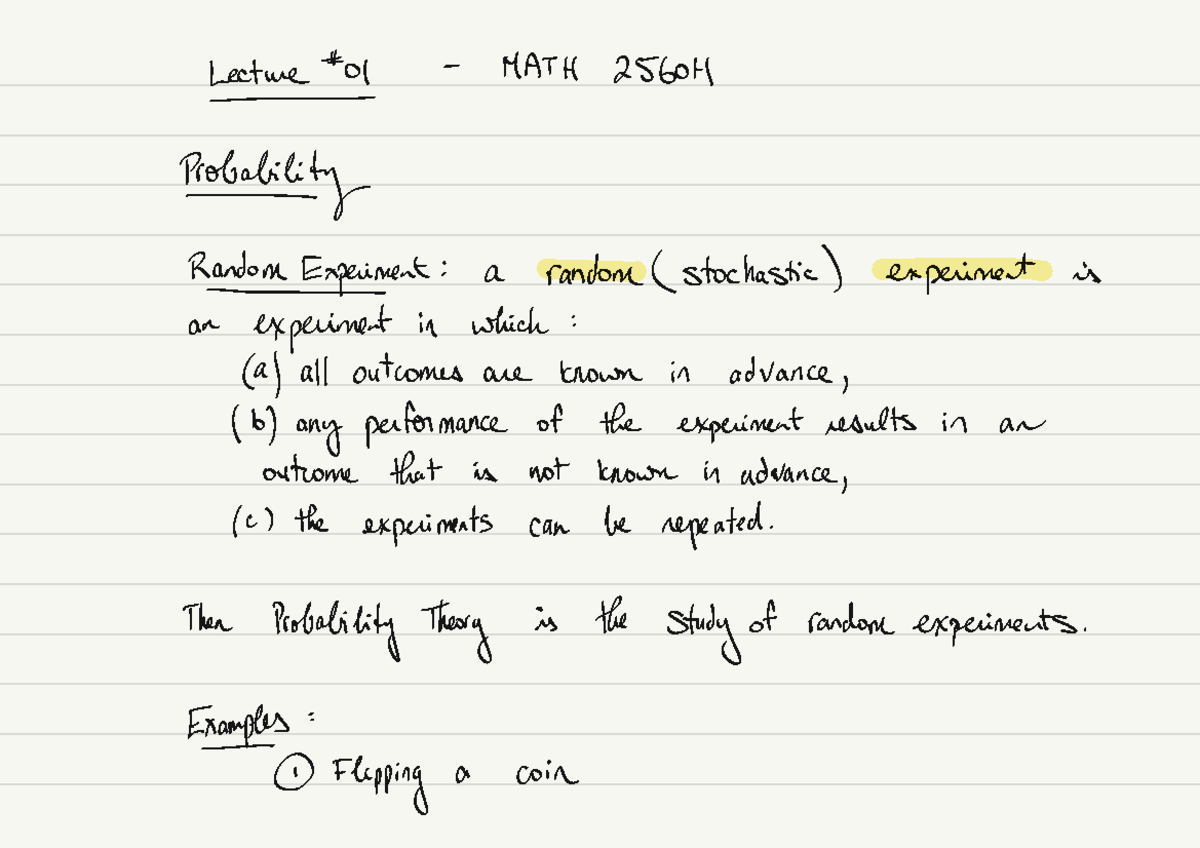 Lecture #01 - MATH 2560H
Probability
Random Experiment: a random (stochastic) experiment is
an experiment in which :
(a) all outcomes are known in advance,
(b) any performance of the experiment results in an
outcome that is not known in advance,
(c) the experiments can be repeated.
Then Probability Theory is the study of random experiments.
Examples :
① Flipping a coin